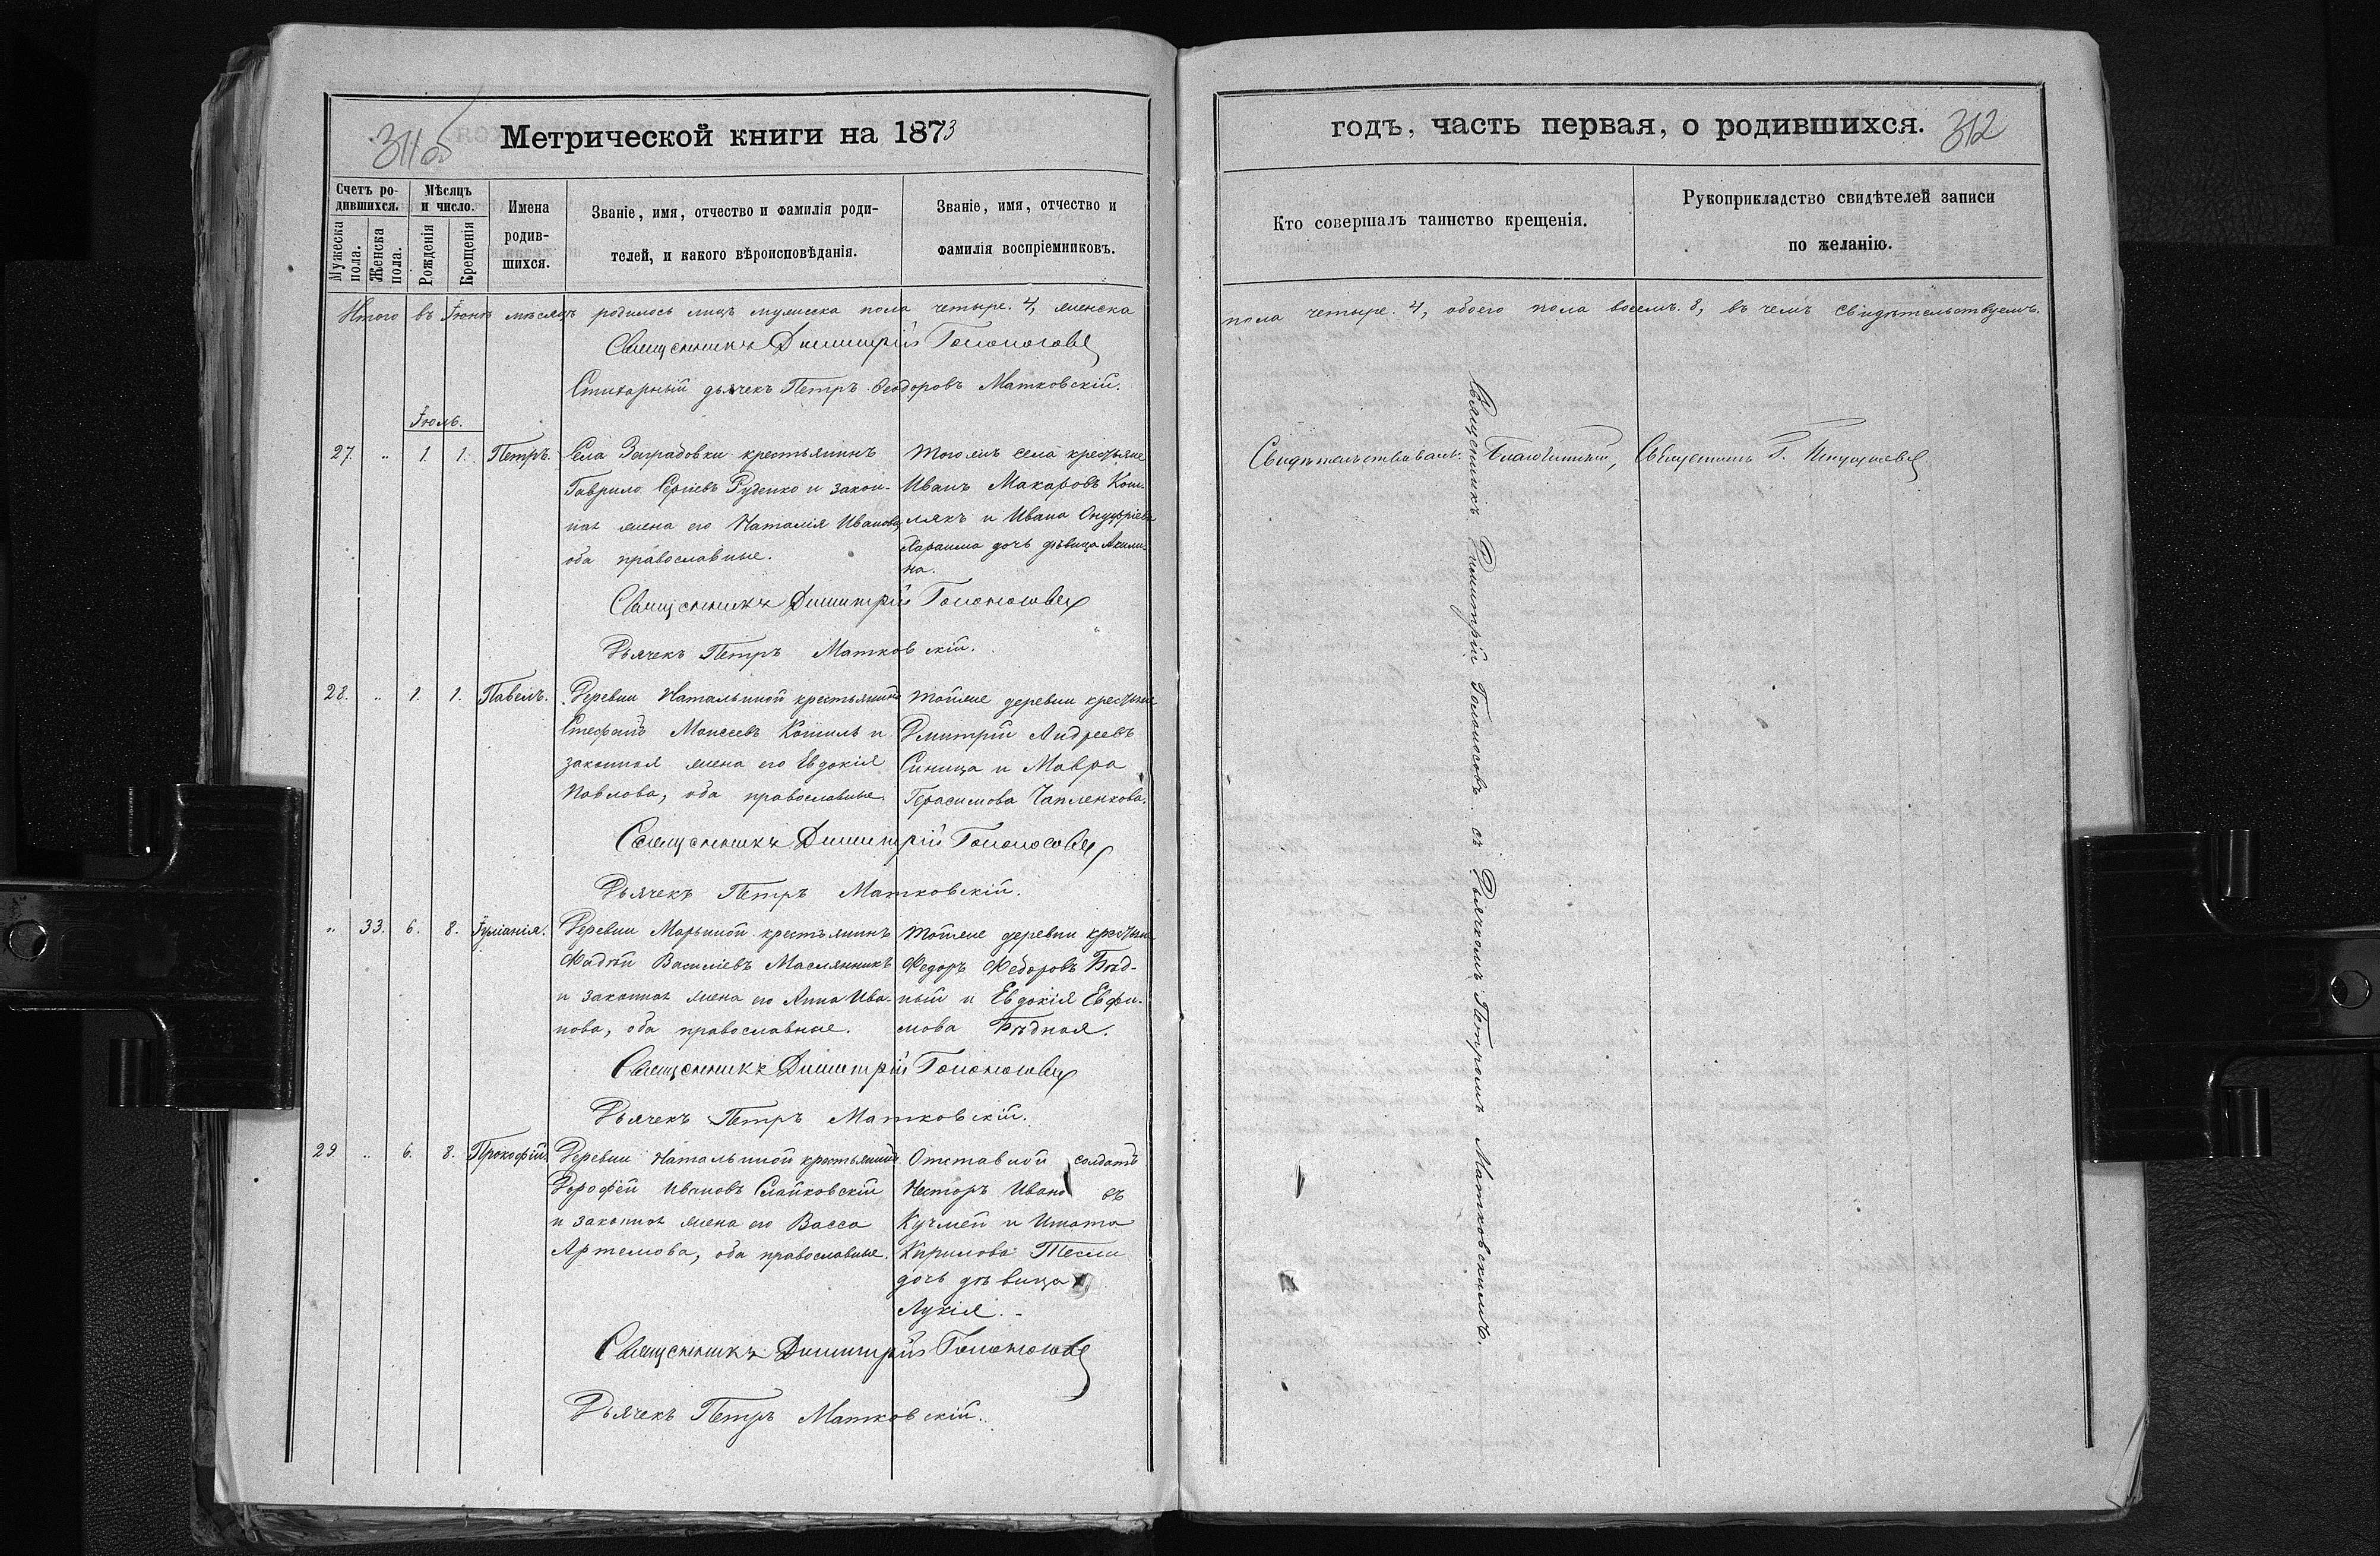 311б
Метрической книги на 1873
Счетъ ро-
дившихся.
Мужеска
пола.
Женска
пола.
Мѣсяцъ
и число.
Рожденія
Крещенія
Имена
родив-
шихся.
Званіе, имя, отчество и фамилія роди-
телей, и какого вѣроисповѣданія.
Званіе, имя, отчество и
фамилія воспріемниковъ.
Итого въ Іюнѣ мѣсяцѣ родилось лицъ мужеска пола четыре. 4, женска
Священникъ Димитрій Голоносовъ
Стихарный дьячекъ Петръ Ѳеодоровъ Матковскій.
Іюль.
27. „ 1. 1. Петръ.
Села Заградовки крестьянинъ
Гаврило Сергіевъ Руденко и закон-
ная жена его Наталія Иванова,
оба православные.
Того же села крестьяне
Иванъ Макаровъ Кош-
лякъ и Ивана Онуфріева
дочь дѣвица Акили-
на.
Священникъ Димитрій Голоносовъ
Дьячекъ Петръ Матковскій.
28. „ 1. 1. Павелъ.
Деревни Натальиной крестьянинъ
Стефанъ Моисеевъ и
законная жена его Евдокія
Павлова, оба православные.
Тойже деревни крестьяне
Дмитрій Андреевъ
Синица и Мавра
Герасимова Чапленкова.
Священникъ Димитрій Голоносовъ
Дьячекъ Петръ Матковскій.
„ 33. 6. 8. Іуліанія.
Деревни Марьиной крестьянинъ
Фадѣй Василіевъ Маслянникъ
и законная жена его Анна Ива-
нова, оба православные.
Тойже деревни крестьяне
Федоръ Федоровъ Бѣд-
ный и Евдокія Евфи-
мова Бѣдная.
Священникъ Димитрій Голоносовъ
Дьячекъ Петръ Матковскій.
29. „ 6. 8. Прокофій.
Деревни Натальиной крестьянинъ
Дорофей Ивановъ Слайковскій
и законная жена его Васса
Артемова, оба православные.
Отставной солдатъ
Несторъ Ивановъ
Кучмей и Игната
Кирилова Тесли
дочь дѣвица
Лукія.
Священникъ Димитрій Голоносовъ
Дьячекъ Петръ Матковскій.
годъ, часть первая, о родившихся.
312
Кто совершалъ таинство крещенія.
Рукоприкладство свидѣтелей записи
по желанію.
пола четыре. 4, обоего пола восемь. 8, въ чемъ свидѣтельствуемъ.
Свидѣтельствовалъ: Благочинный, Священникъ
Священникъ Димитрій Голоносовъ съ Дьячкомъ Петромъ Матковскимъ.